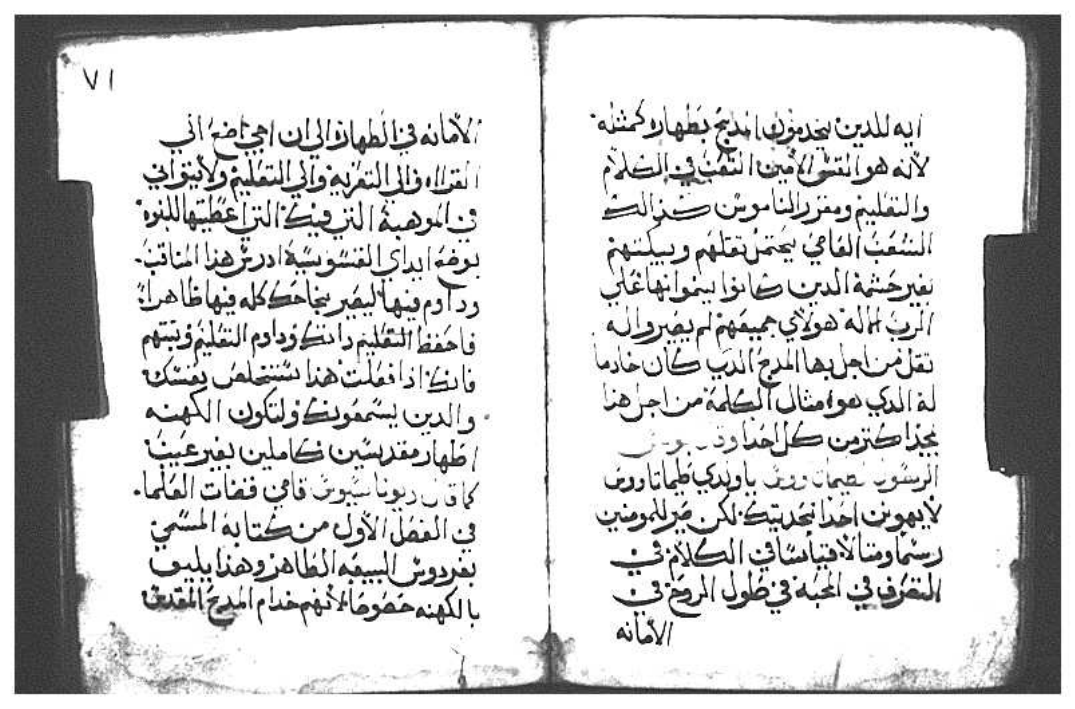 ايه للدين يخدمون المدبح بطهاره كمثله
لانه هو القس الامين التعب في الكلام
والتعليم ومفرر الناموس
الشعب القاسي يحتمل تقلهم ويبكتهم
بغير حشمة الدين كانوا
الرب الاله هولاي جميعهم لم يصيروا له
تقل من اجل بها المدبح الدي كان خادما
له الدي هو مثال الكلمة من اجل هدا
مجدا كتر من كل احدا وقال بولس
الرسول لطيماتاووس يا ولدي طيماتاووس
لا يهون احدا بحديتك لكن صر للمومنين
رسما ومتالا في الكلام في
التصرف في المحبه في طول الروح في
الامانه
٧١
الامانه في الطهاره الي ان اجي اضع الي
القراااه والي التعزيه والي التعليم ولا تتواني
في الموهبة التي فيك التي اعطيتها للنبوه
بوضع ايداي القسوسية ادرس هدا المناقب
وداوم فيها ليصير نجاحك كله فيها ظاهرا
فاحفظ التعليم داتك وداوم التعليم وتبتهم
فانك ادا فعلت هدا ستخلص نفسك
والدين يسمعونك ولتكون الكهنه
اطهار مقدسين كاملين بغير عيب
كما قال ديوناسيوس قاضي قضات العلما
في الفصل الاول من كتابه المسمي
بفردوس البيعه الطاهر وهدا يليق
بالكهنه خصوصا لانهم خدام المدبح المقدس